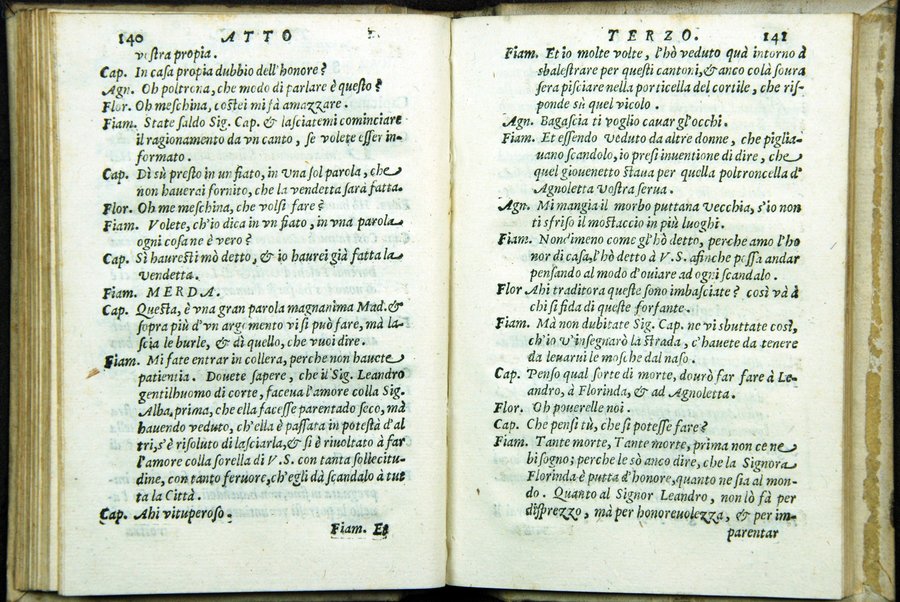 140 ATTO
vostra propia.
Cap. In casa propia dubbio dell'honore?
Agn. Oh poltrona, che modo di parlare è questo?
Flor. Oh meschina, costei mi fà amazzare.
Fiam. State saldo Sig. Cap. & lasciatemi cominciare
il ragionamento da vn canto, se volete esser in-
formato.
Cap. Dì sù presto in un fiato, in vna sol parola, che
non hauerai fornito, che la vendetta sarà fatta.
Flor. Oh me meschina, che volsi fare?
Fiam. Volete, ch'io dica in vn fiato, in vna parola
ogni cosa ne è vero?
Cap. Sì hauresti mò detto, & io haurei già fatta la
vendetta.
Fiam. MERDA.
Cap. Questa, è vna gran parola magnanima Mad. &
sopra più d'vn argomento vi si può fare, mà la-
scia le burle, & dì quello, che vuoi dire.
Fiam. Mi fate entrar in collera, perche non hauete
patientia. Douete sapere, che il Sig. Leandro
gentilhuomo di corte, faceua l'amore colla Sig.
Alba, prima, che ella facesse parentado seco, mà
hauendo veduto, ch'ella è passata in potestà d'al
tri, s'è risoluto di lasciarla, & si è riuoltato à far
l'amore colla sorella di V.S. con tanta sollecitu-
dine, con tanto feruore, ch'egli dà scandalo à tut
ta la Città.
Cap. Ahi vituperoso.
Fiam. Et
TERZO. 141
Fiam. Et io molte volte, l'hò veduto quà intorno à
sbalestrare per questi cantoni, & anco colà soura
sera pisciare nella porticella del cortile, che ris-
ponde sù quel vicolo.
Agn. Bagascia ti voglio cauar gl'occhi.
Fiam. Et essendo veduto da altre donne, che piglia-
uano scandolo, io presi inuentione di dire, che
quel giouenetto staua per quella poltroncella d'
Agnoletta vostra serua.
Agn. Mi mangia il morbo puttana vecchia, s'io non
ti sfriso il mostaccio in più luoghi.
Fiam. Nond'imeno come gl'hò detto, perche amo l'ho
nor di casa, l'hò detto à V.S. afinche possa andar
pensando al modo d'ouiare ad ogni scandalo.
Flor Ahi traditora queste sono imbasciate? così và à
chi si fida di queste forfante.
Fiam. Mà non dubitate Sig. Cap. ne vi sbuttate così,
ch'io v'insegnarò la strada, c'hauete da tenere
da leuarui le mosche dal naso.
Cap. Penso qual sorte di morte, dourò far fare à Le-
andro, à Florinda, & ad Agnoletta.
Flor. Oh pouerelle noi.
Cap. Che pensi tù, che si potesse fare?
Fiam. Tante morte, Tante morte, prima non ce ne
bisogno; perche le sò anco dire, che la Signora
Florinda è putta d'honore, quanto ne sia al mon-
do. Quanto al Signor Leandro, non lò fà per
disprezzo, mà per honoreuolezza, & per im-
parentar